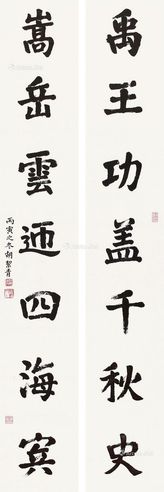 禹王功盖千秋史
嵩岳雲迎四海宾
丙寅之冬胡絜青